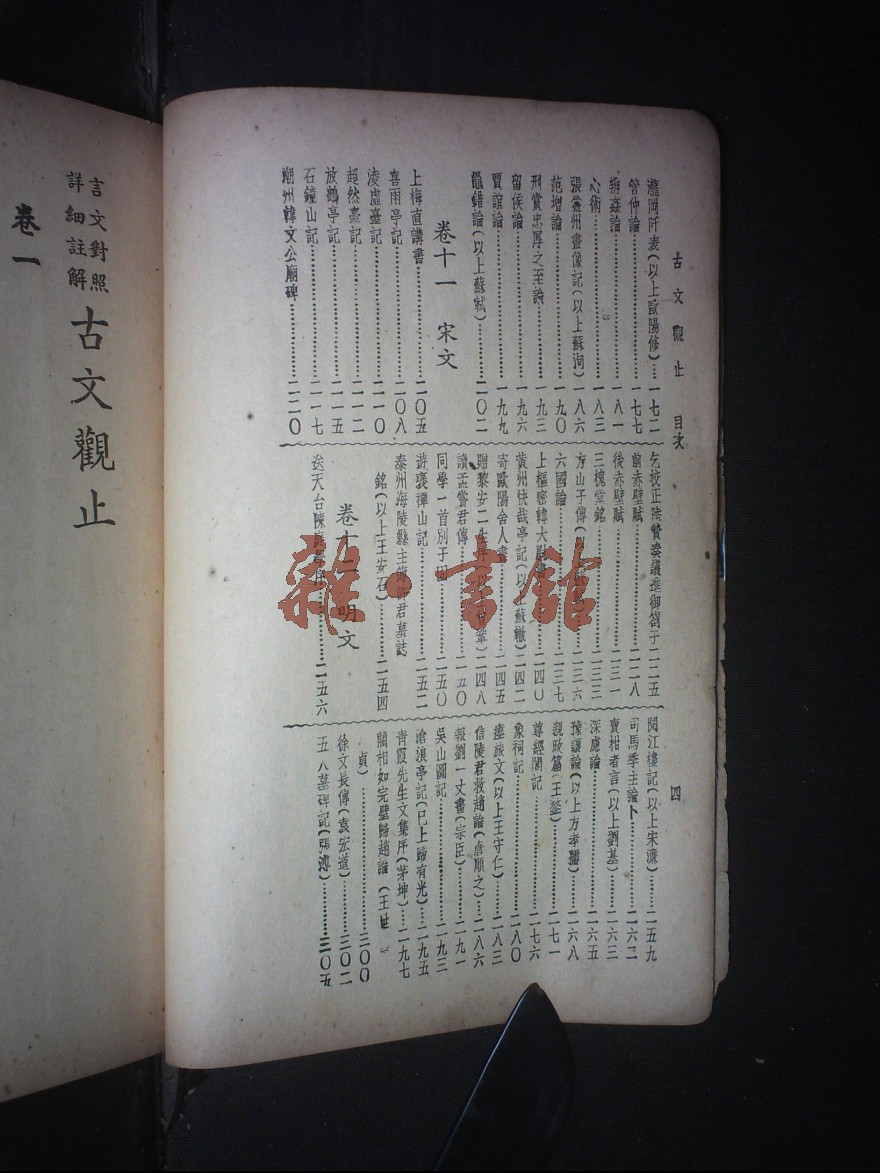 古文觀止 目次
四
瀧岡阡表(以上歐陽修)…一七二
管仲論…一七七
辨姦論…一八一
心術…一八三
張益州畫像記(以上蘇洵)…一八六
范增論…一九〇
刑賞忠厚之至論…一九三
留侯論…一九六
賈誼論…一九九
鼂錯論(以上蘇軾)…二〇二
卷十一 宋文
上梅直講書…二〇五
喜雨亭記…二〇八
淩虛臺記…二一〇
超然臺記…二一二
放鶴亭記…二一五
石鐘山記…二一七
潮州韓文公廟碑…二二〇
乞校正陸贄奏議進御劄子二二五
前赤壁賦…二二八
後赤壁賦…二三一
三槐堂銘…二三三
方山子傳…二三六
六國論…二三七
上樞密韓大尉書…二四〇
黃州快哉亭記(以上蘇轍)二四二
寄歐陽舍人書…二四五
贈黎安二生序…二四八
讀孟嘗君傳…二五〇
同學一首別子固…二五〇
遊褒禪山記…二五二
泰州海陵縣主簿許君墓誌
銘(以上王安石)…二五四
卷十二 明文
送天台陳…二五六
閱江樓記(以上宋濂)…二五九
司馬季主論卜…二六二
賣柑者言(以上劉基)…二六三
深慮論…二六五
豫讓論(以上方孝孺)…二六八
親政篇(王鏊)…二七一
尊經閣記…二七六
象祠記…二八〇
瘞旅文(以上王守仁)…二八三
信陵君救趙論(唐順之)…二八六
報劉一丈書(宗臣)…二九一
吳山圖記…二九三
滄浪亭記(已上歸有光)…二九五
青霞先生文集序(茅坤)…二九七
藺相如完璧歸趙論(王世
貞)…三〇〇
徐文長傳(袁宏道)…三〇二
五人墓碑記(張溥)…三〇五
言文對照
詳細註解
古文觀止
卷一
雜·書館